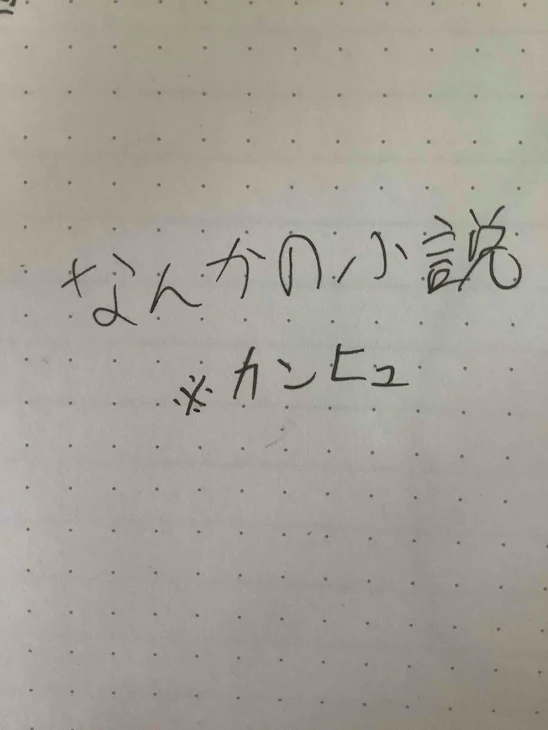 なんかの小説
※カンヒュ